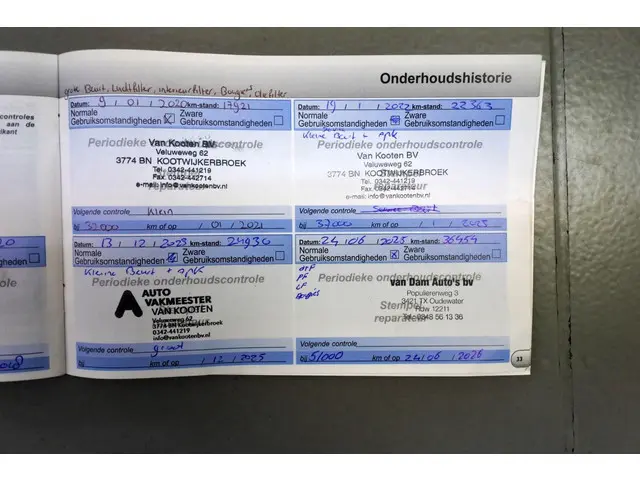 Onderhoudshistorie
grote Beurt, Luchtfilter, interieurfilter, Bougie's, oliefilter
Datum: 9 / 01 / 2020 km-stand: 17921
Normale Gebruiksomstandigheden
Zware Gebruiksomstandigheden
Periodieke onderhoudscontrole
Van Kooten BV
Veluweweg 62
3774 BN KOOTWIJKERBROEK
Tel. 0342-441219
Fax. 0342-442714
e-mail: info@vankootenbv.nl
Volgende controle Klein
bij 32000 km of op / 01 / 2021
Datum: 19 / 1 / 2022 km-stand: 22563
Normale Gebruiksomstandigheden
Zware Gebruiksomstandigheden
Kleine Beurt + apk
Periodieke onderhoudscontrole
Van Kooten BV
Veluweweg 62
3774 BN KOOTWIJKERBROEK
Tel. 0342-441219
Fax. 0342-442714
e-mail: info@vankootenbv.nl
Volgende controle
bij 37000 km of op / 1 / 2023
Datum: 13 / 12 / 2023 km-stand: 24930
Normale Gebruiksomstandigheden
Zware Gebruiksomstandigheden
Kleine Beurt + apk
Periodieke onderhoudscontrole
AUTO
VAKMEESTER
VAN KOOTEN
Veluweweg 62
3774 BN Kootwijkerbroek
0342-441219
info@vankootenbv.nl
Volgende controle groot
bij km of op / 12 / 2025
Datum: 24 / 06 / 2025 km-stand: 36454
Normale Gebruiksomstandigheden
Zware Gebruiksomstandigheden
PF
LF
Bougies
Periodieke onderhoudscontrole
van Dam Auto's bv
Populierenweg 3
3421 TX Oudewater
Rdw 12211
Tel. 0348 56 13 36
Stempel
reparateur
Volgende controle
bij 51000 km of op 24/06 / 2026
33
controles
aan de